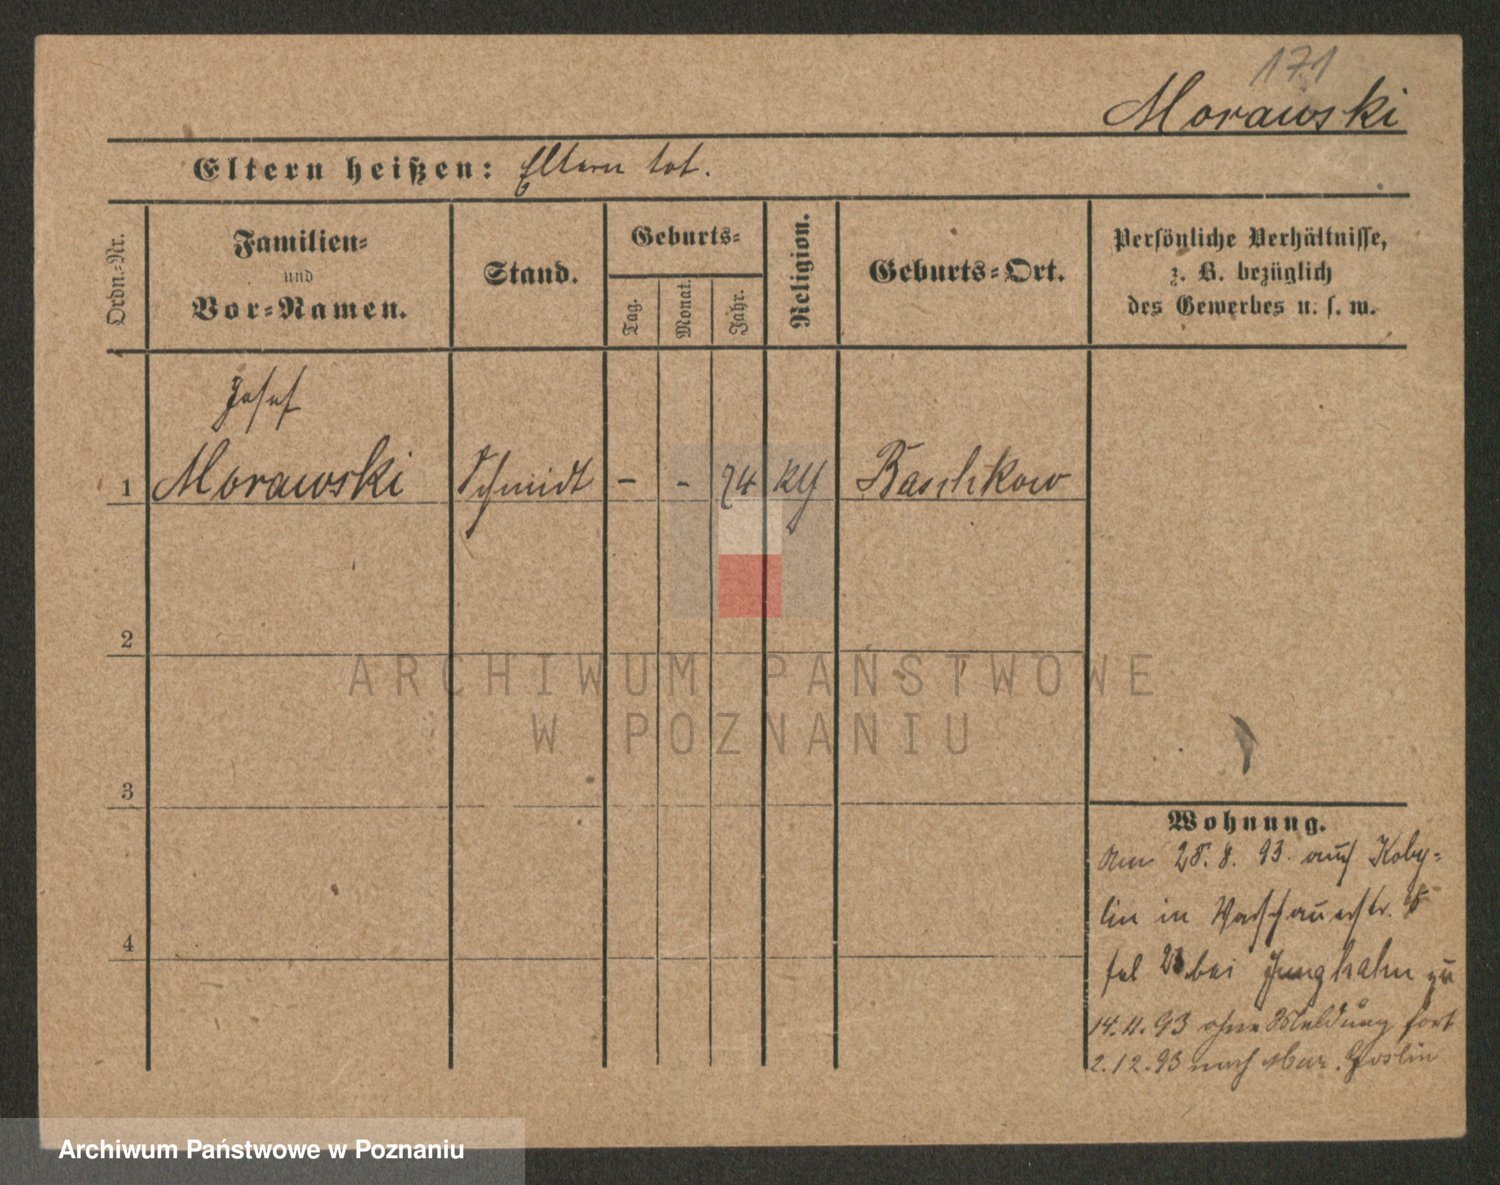 171
Morawski
Eltern heißen: Eltern tot.
Ordn.-Nr.
Familien-
und
Vor-Namen.
Stand.
Geburts-
Tag.
Monat.
Jahr.
Religion.
Geburts-Ort.
Persönliche Verhältnisse,
z. B. bezüglich
des Gewerbes u. s. w.
Josef
1 Morawski Schmidt - - 74 Baschkow
2
ARCHIWUM PAŃSTWOWE
W POZNANIU
3
Wohnung.
Am 28. 8. 93. auf Koby-
lin in
4
bei Junghahn zu
14. 11. 93 ohne Meldung fort
2. 12. 93 nach Mur. Goslin
Archiwum Państwowe w Poznaniu